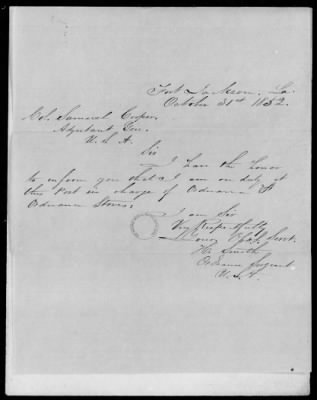 Fort Jackson, La.
October 31st 1852.
Col. Samuel Cooper,
Adjutant Gen.
U. S. A.
Sir
I have the honor
to inform you that I am on duty at
this Post in charge of Ordnance &
Ordnance Stores.
I am Sir
Very Respectfully
Your Obdt. Servt.
H. Smith
Ordnance Sergeant
U. S. A.